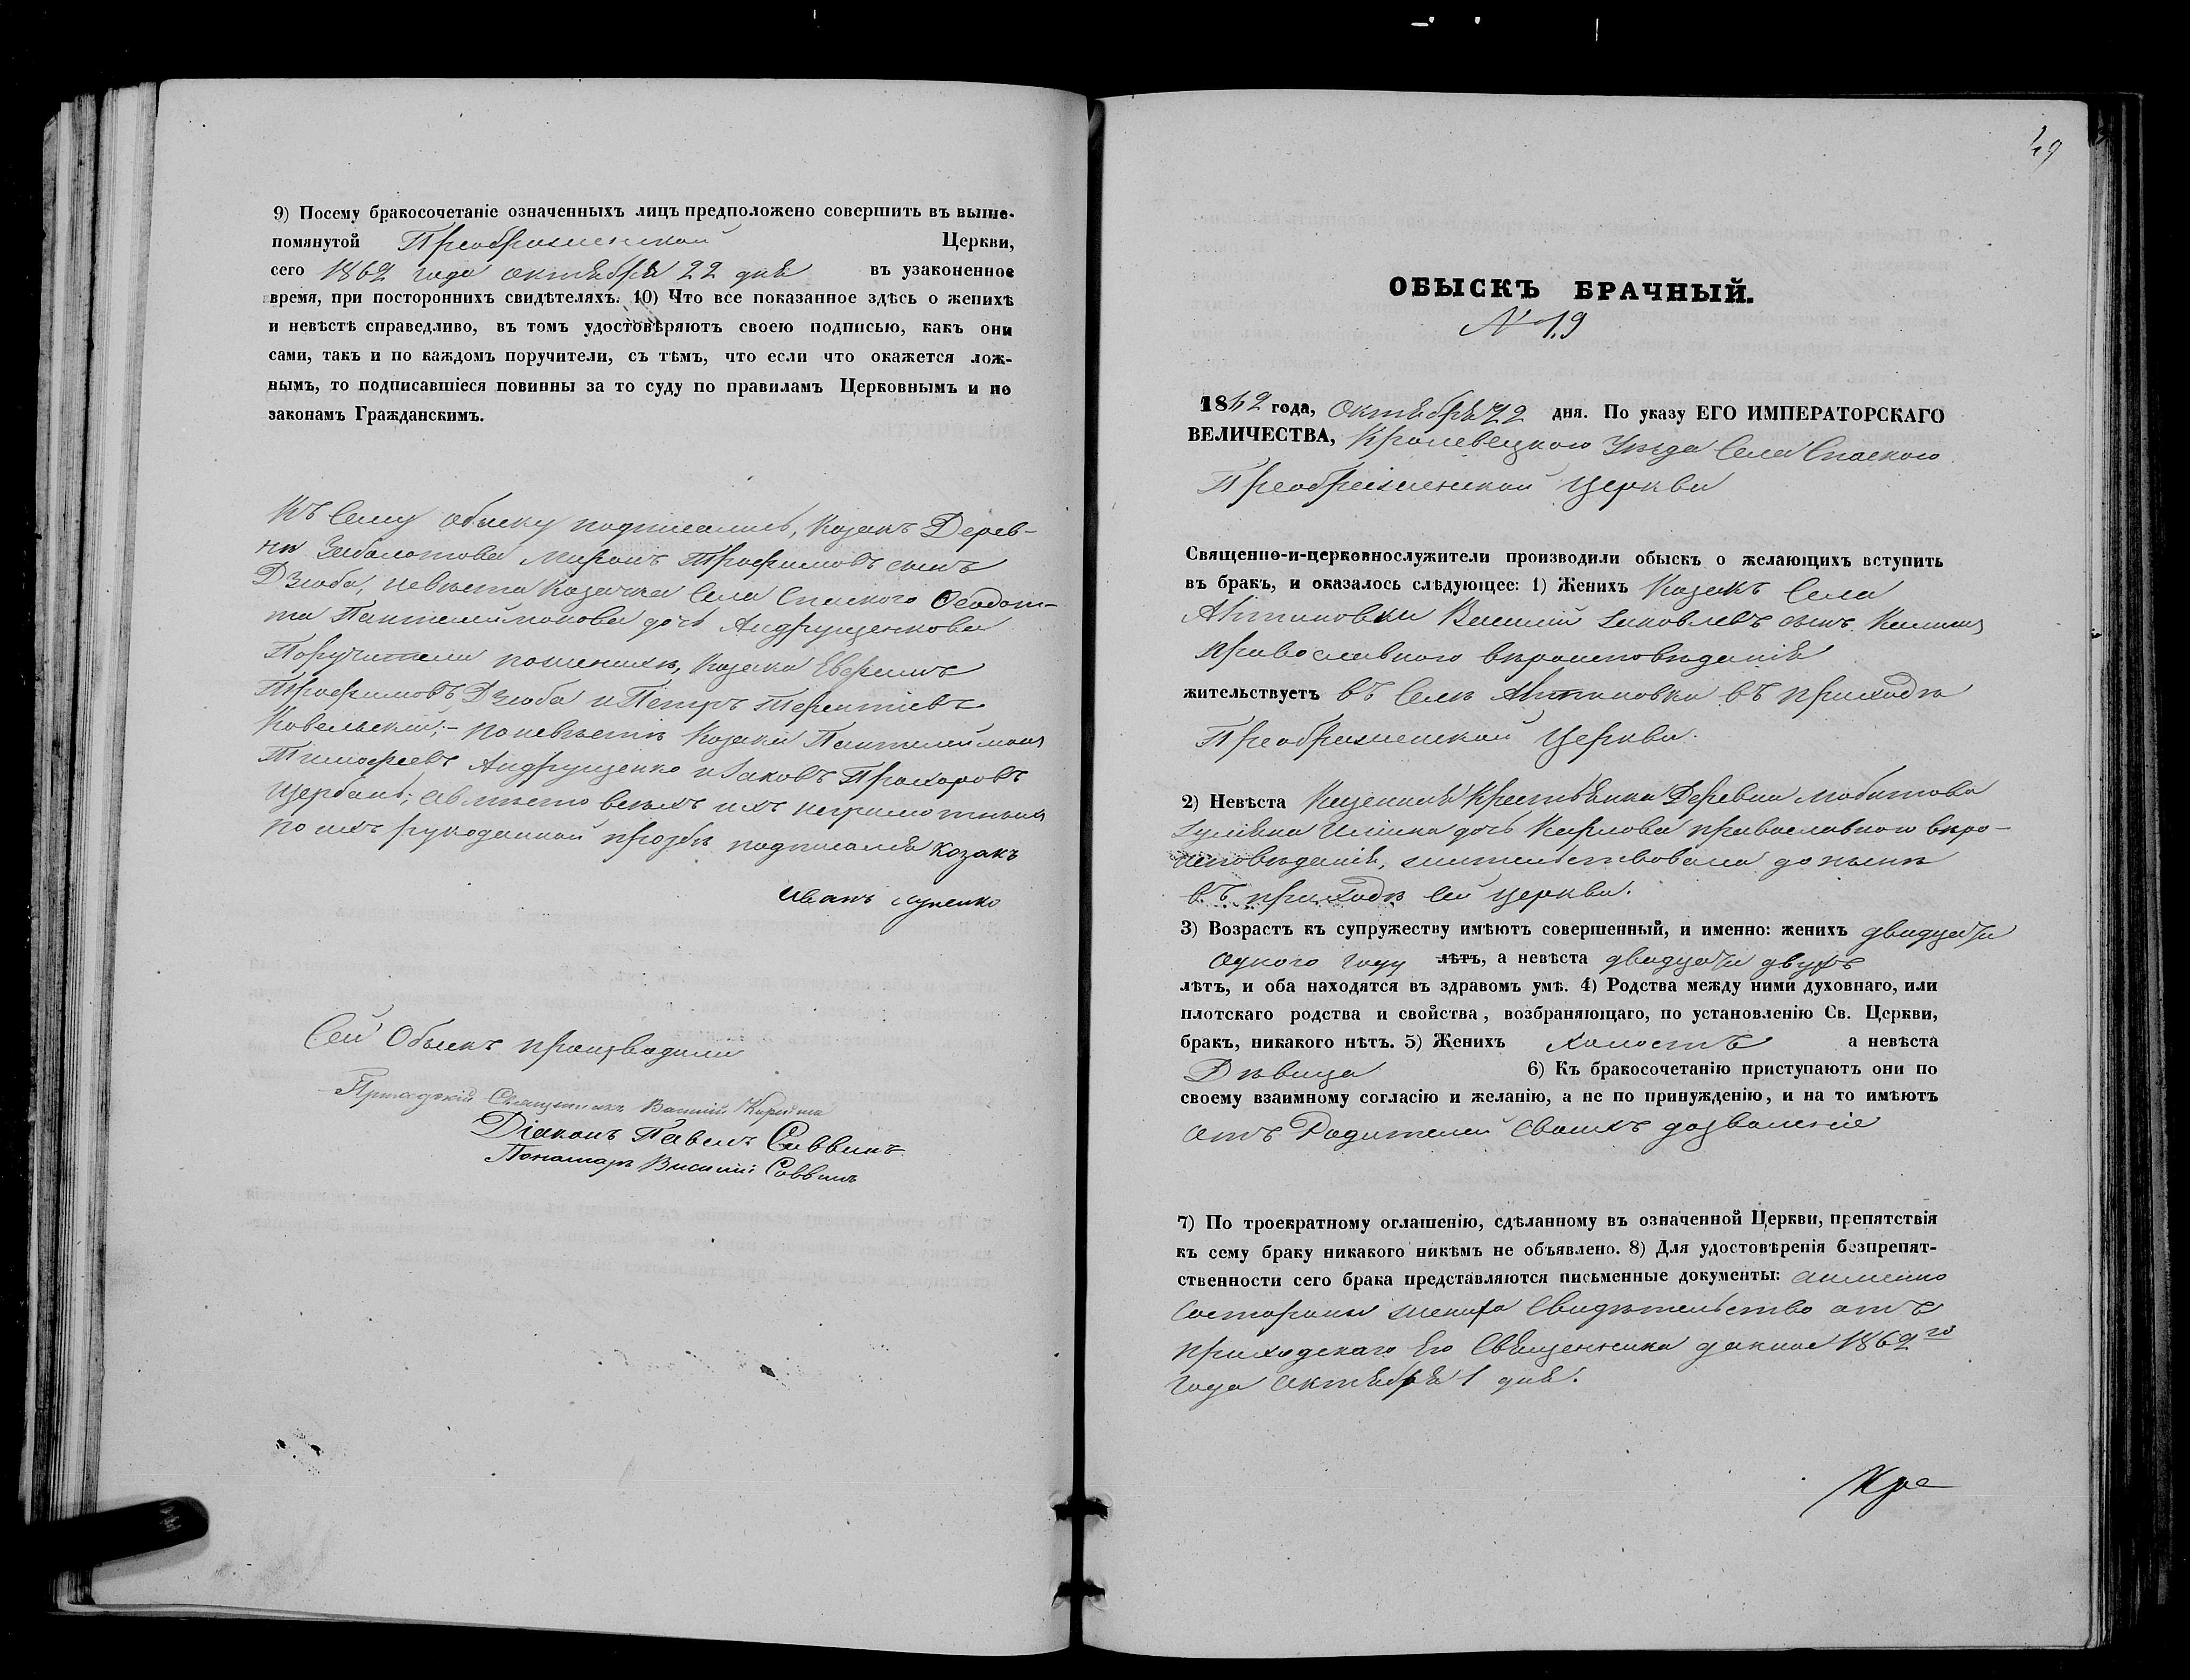 9) Посему бракосочетаніе означенныхъ лицъ предположено совершить въ выше-
помянутой Преображенской Церкви,
сего 1862 года октября 22 дня въ узаконенное
время, при постороннихъ свидѣтеляхъ. 10) Что все показанное здѣсь о женихѣ
и невѣстѣ справедливо, въ томъ удостовѣряютъ своею подписью, какъ они
сами, такъ и по каждомъ поручители, съ тѣмъ, что если что окажется лож-
нымъ, то подписавшіеся повинны за то суду по правиламъ Церковнымъ и по
законамъ Гражданскимъ.
Къ Сему обыску подписались, Козакъ Дерев-
ни Заболотова Миронъ Трофимовъ сынъ
Дзюба, невѣста Козачка Села Спаского Ѳеодот-
та Пантелиймонова дочь Андрущенкова
Поручители пожениха, Козаки Евфимъ
Трофимовъ Дзюба и Петръ Терентіевъ
Ковельскій; - по невѣстѣ Козаки Пантелиймонъ
Тимофеевъ Андрущенко и Яковъ Прохоровъ
Щербакъ; а вмѣсто всѣхъ ихъ неграмотныхъ
по ихъ рукоданной прозбѣ подписался козакъ
Иванъ
Сей Обыскъ производили
Приходскій Священникъ Василій
Діаконъ Павелъ Саввинъ
Пономарь Василій Саввинъ
49
ОБЫСКЪ БРАЧНЫЙ.
№ 19
1862 года, Октября 22 дня. По указу ЕГО ИМПЕРАТОРСКАГО
ВЕЛИЧЕСТВА, Кролевецкого Уѣзда Села Спаского
Преображенской Церкви
Священно-и-церковнослужители производили обыскъ о желающихъ вступить
въ бракъ, и оказалось слѣдующее: 1) Женихъ Козакъ Села
Антиновки Василий Яковлевъ сынъ
православного вѣроисповѣданія
жительствуетъ въ Селѣ Антиновки въ приходѣ
Преображенской Церкви.
2) Невѣста Казенная Крестьянка Деревни
Илiина дочь Карпова православного вѣро-
исповѣданія, жительствовала до нынѣ
въ приходѣ сей церкви.
3) Возрастъ къ супружеству имѣютъ совершенный, и именно: женихъ двадцати
одного году лѣтъ, а невѣста двадцати двухъ
лѣтъ, и оба находятся въ здравомъ умѣ. 4) Родства между ними духовнаго, или
плотскаго родства и свойства, возбраняющаго, по установленію Св. Церкви,
бракъ, никакого нѣтъ. 5) Женихъ холостъ а невѣста
Дѣвица 6) Къ бракосочетанію приступаютъ они по
своему взаимному согласію и желанію, а не по принужденію, и на то имѣютъ
отъ Родителей своихъ дозволеніе
7) По троекратному оглашенію, сдѣланному въ означенной Церкви, препятствія
къ сему браку никакого никѣмъ не объявлено. 8) Для удостовѣренія безпрепят-
ственности сего брака представляются письменные документы: а именно
состороны жениха Свидѣтельство отъ
приходскаго Его Священника данное 1862го
года октября 1 дня.